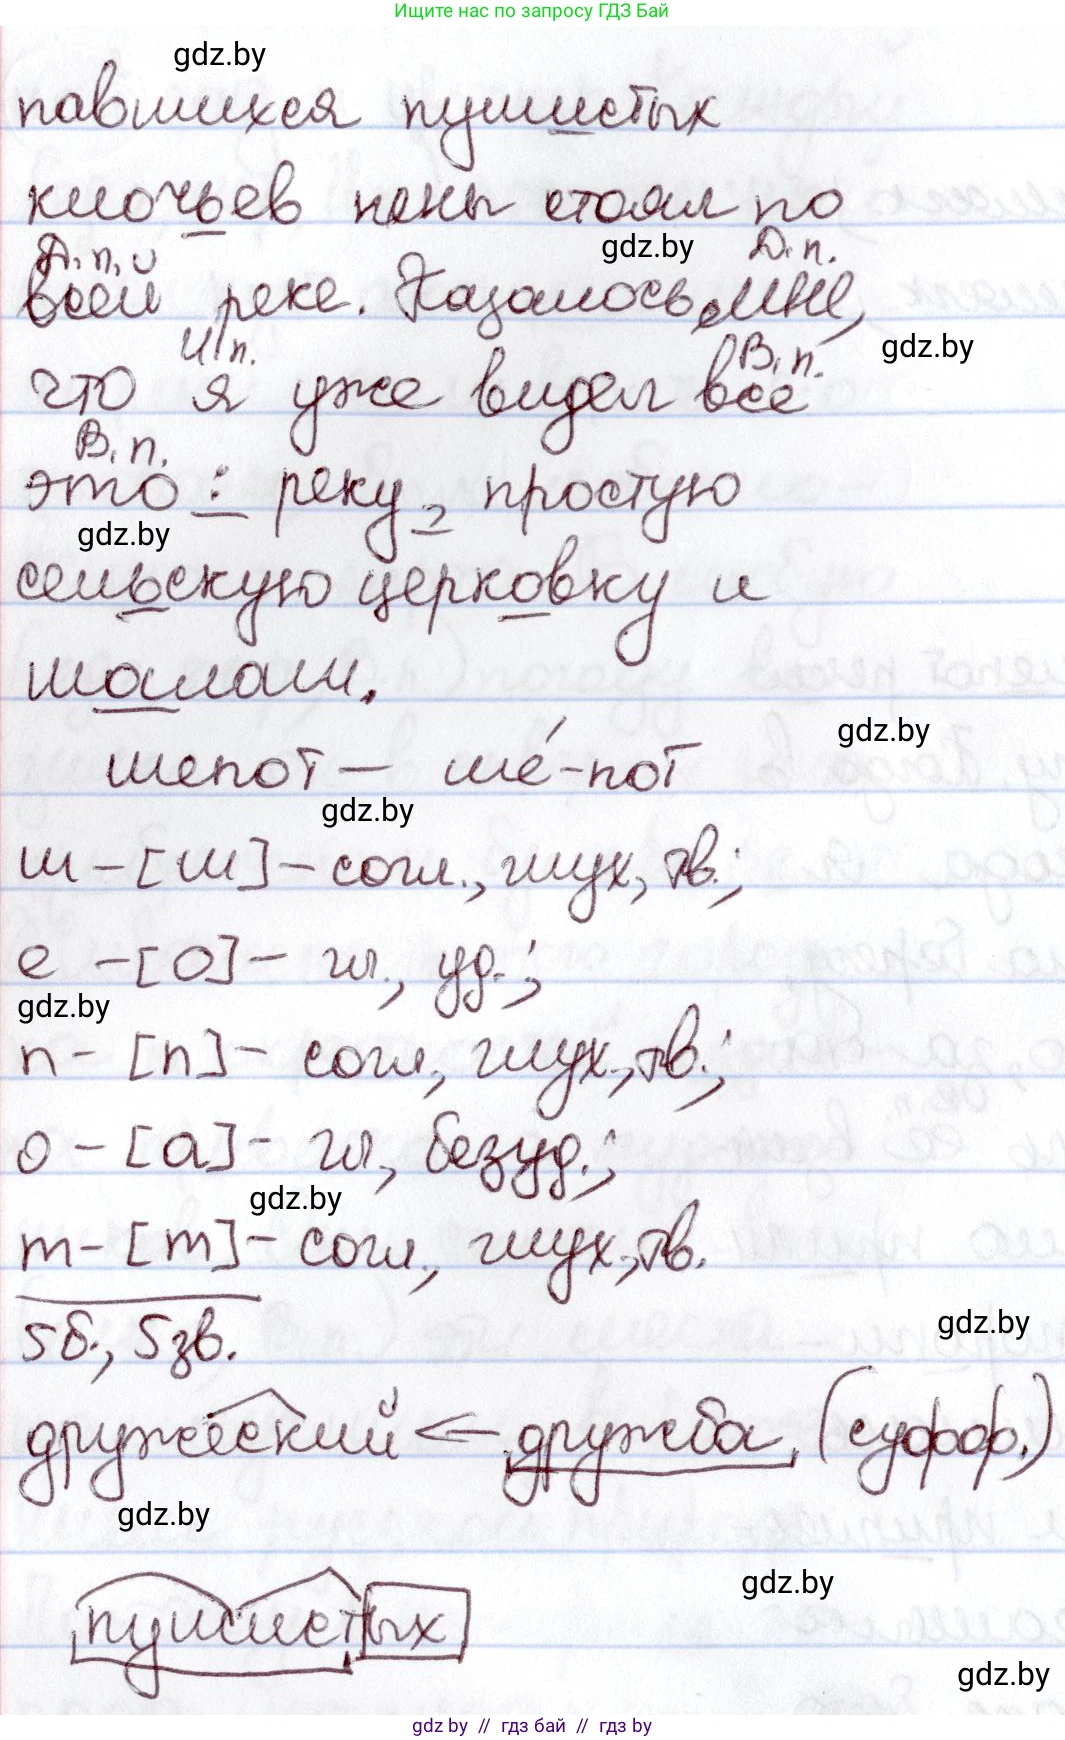 Ищите нас по запросу ГДЗ Бай
gdz.by
павшихся пушистых
клочьев пены стоял по
gdz.by
Д. п. Д. п.
всей реке. Казалось мне,
gdz.by
И п. В. п.
что я уже видел всё
В. п.
это : реку , простую
gdz.by
сельскую церковку и
шалаш.
gdz.by
шепот — ше́-пот
gdz.by
ш – [ш] – согл., глух, тв.;
е – [о] – гл., уд.;
gdz.by
п – [п] – согл., глух., тв.;
о – [а] – гл., безуд.;
gdz.by
т – [т] – согл., глух., тв.
gdz.by
5 б., 5 зв.
дружеский ← дружба (суфф.)
gdz.by
gdz.by
пушистых
gdz.by
gdz by // гдз бай // гдз by